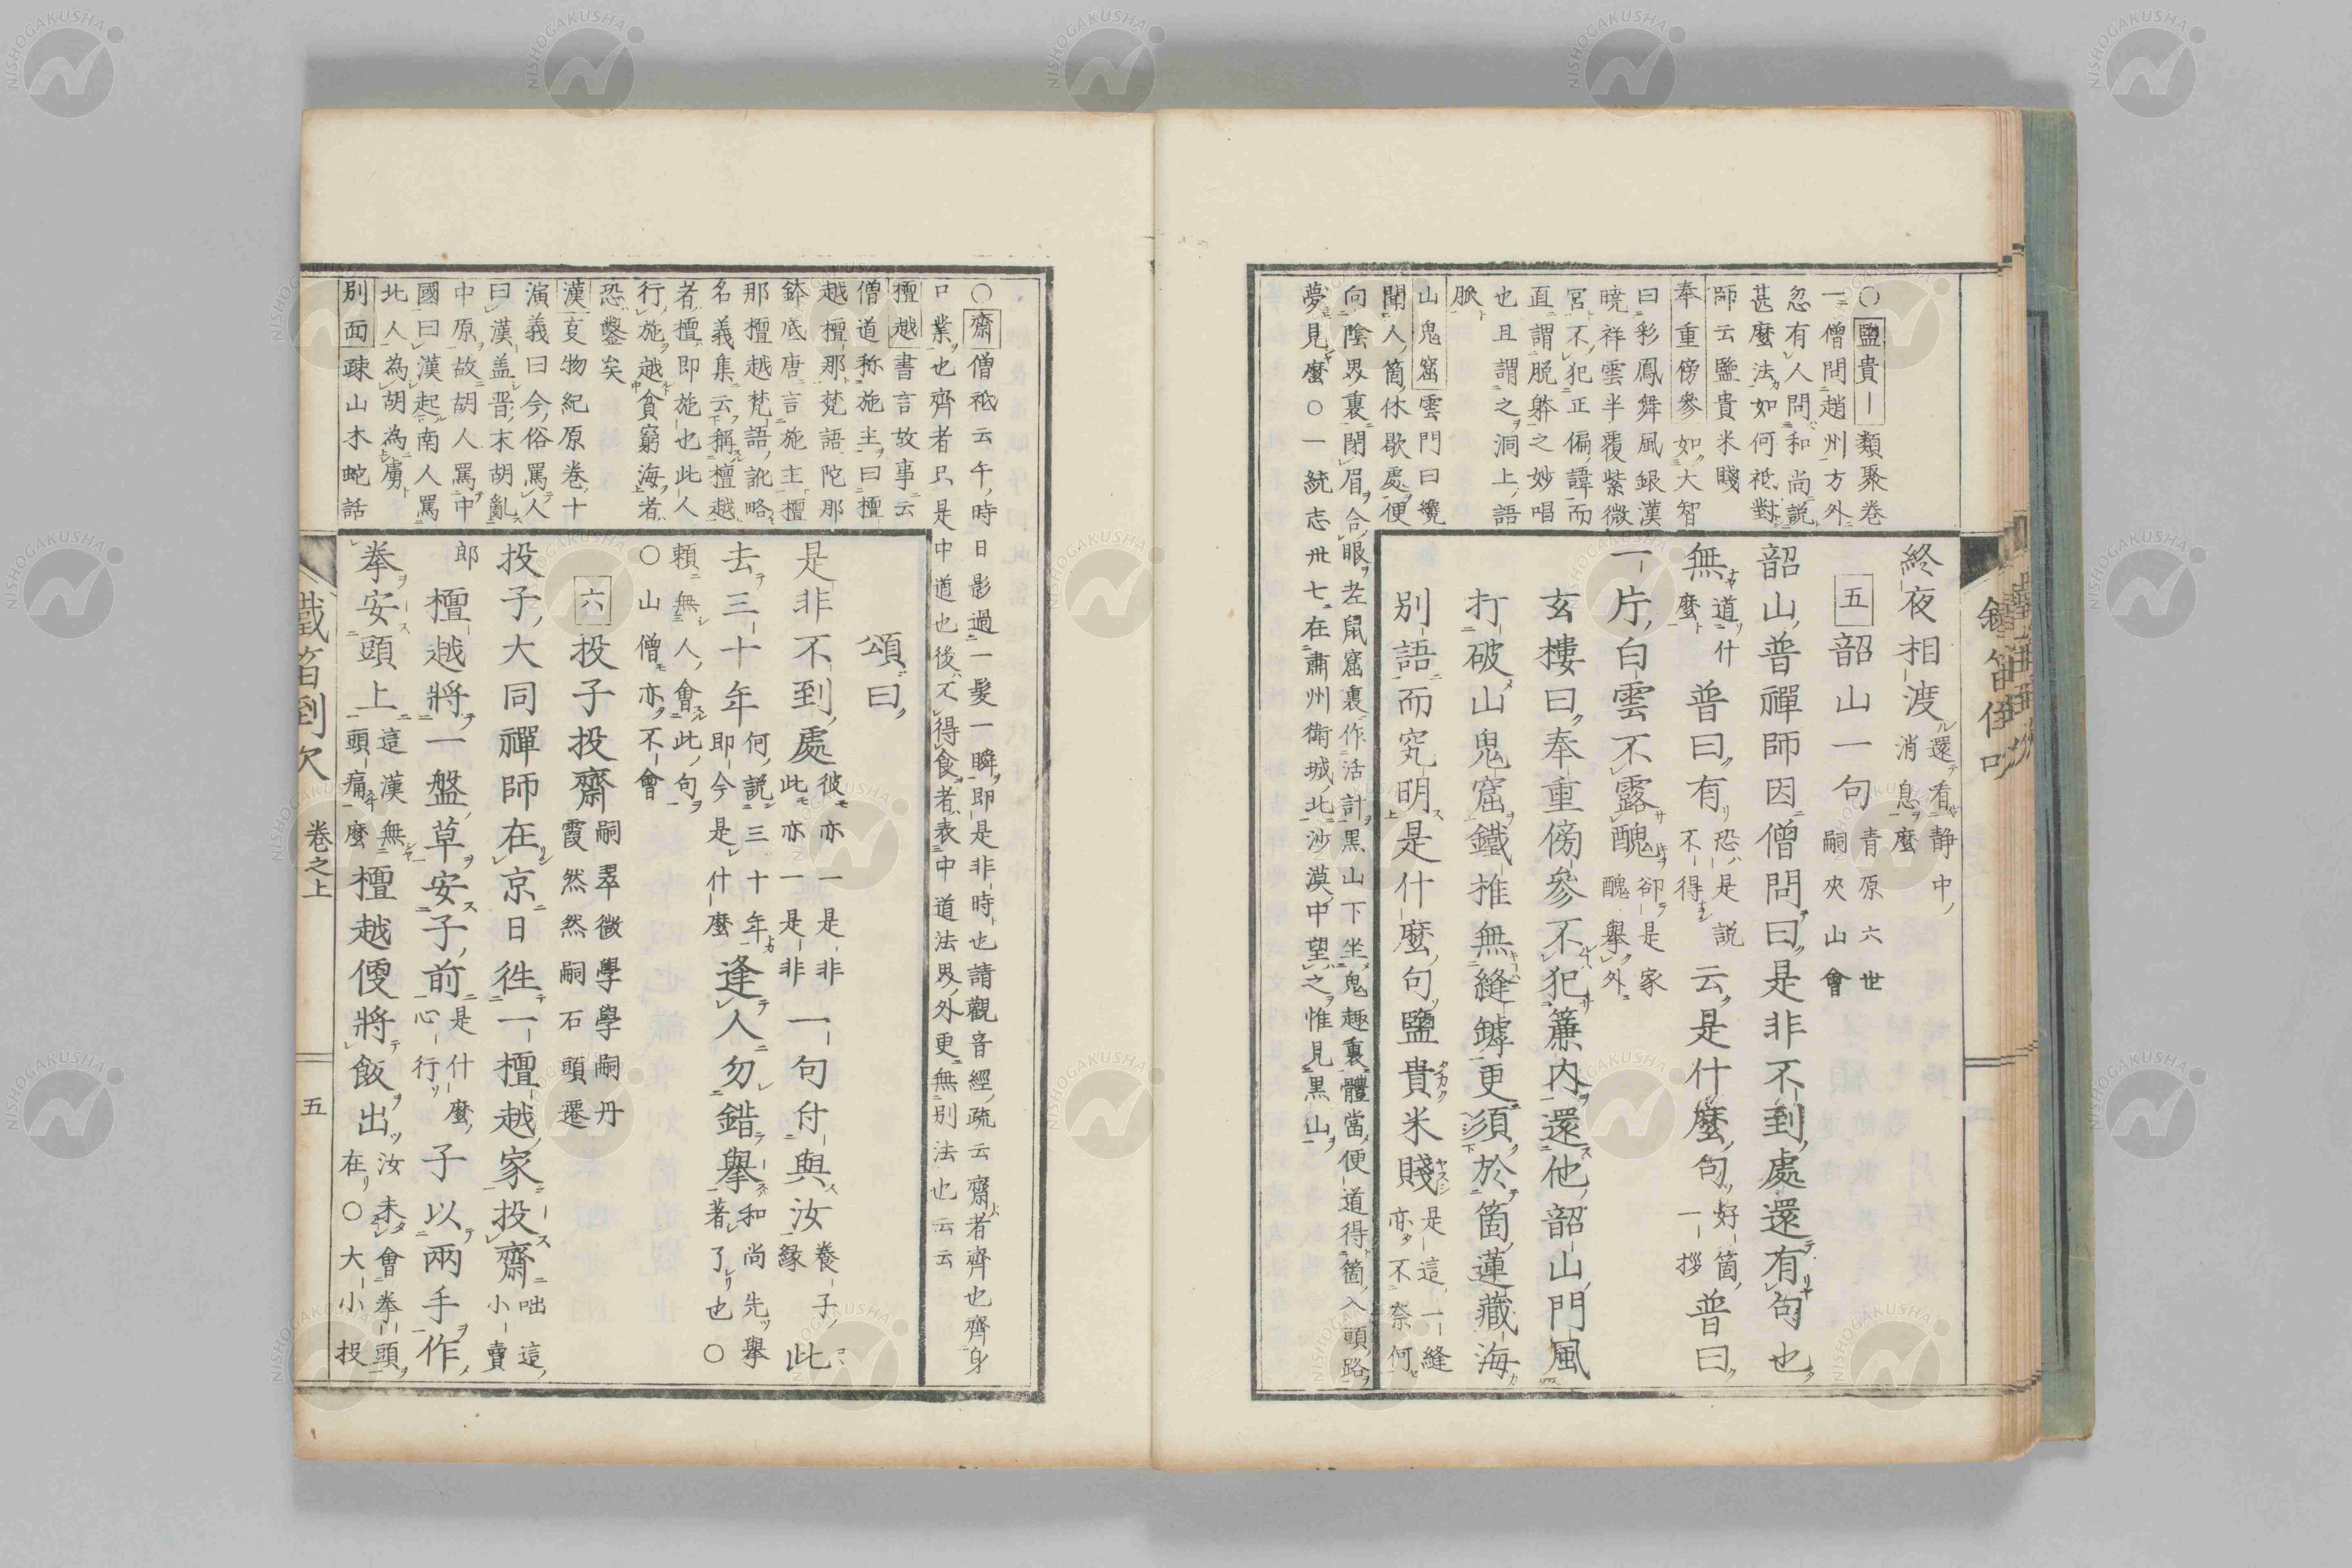 終夜相渡還看静中消息麼
五 韶山一句青原六世嗣夾山會
韶山普禪師因僧問曰是非不到處還有句也
無道什麼普曰有恐是説不得云是什麼句好箇一拶普曰
一片白雲不露醜卻是家醜擧外
玄樓曰奉重傍參不犯簾内還他韶山門風
打破山鬼窟鐵推無縫罅更須於箇蓮藏海
別語而究明是什麼句鹽貴米賤是這一縫亦不奈何
○鹽貴｜類聚巻
一僧問趙州方外
忽有人問和尚説
甚麼法如何祗對
師云鹽貴米賤
奉重傍參如大智
曰彩鳳舞風銀漢
曉祥雲半覆紫微
宮不犯正偏諱而
直謂脱躰之妙唱
也且謂之洞上語
脈
山鬼窟雲門曰纔
聞人箇休歇處便
向陰界裏閉眉合眼老鼠窟裏作活計黒山下坐鬼趣裏體當便道得箇入頭路
夢見麼○一統志卅七在肅州衛城北沙漠中望之惟見黒山
鐵笛倒吹
○齋僧祇云午時日影過一髮一瞬即是非時也請觀音經疏云齋者齊也齊身
口業也齊者只是中道也後不得食者表中道法界外更無別法也云云
檀越書言故事云
僧道称施主曰檀
越檀那梵語陀那
鉢底唐言施主檀
那檀越梵語訛略
名義集云稱檀越
者檀即施也此人
行施越貧窮海者
恐鑿矣
漢支物紀原巻十
演義曰今俗罵人
曰漢盖晋末胡亂
中原故胡人罵中
國曰漢起南人罵
北人為胡為虜
別面疎山木蛇話
頌曰
是非不到處彼亦一是非此亦一是非一句付與汝養子縁此
去三十年何説三十年即今是什麼逢人勿錯擧和尚先擧著了也○
頼無人會此句
○山僧亦不會
六 投子投齋嗣翠微學學嗣丹霞然然嗣石頭遷
投子大同禪師在京日徃一檀越家投齋咄這小賣
郎檀越將一盤草安子前是什麼心行子以兩手作
拳安頭上這漢無頭痛麼檀越便將飯出汝未會拳頭在○大小投
鐵笛倒吹 巻之上 五